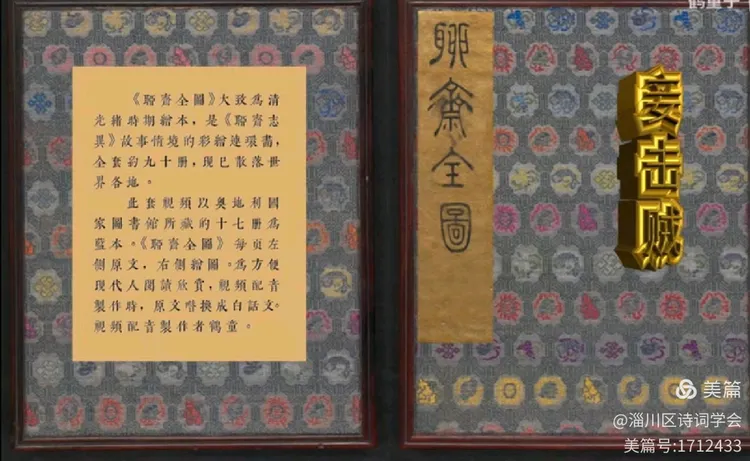 鹤童子
《聊齋全圖》大致爲清
光緒時期繪本,是《聊齋志
異》故事情境的彩繪連環畫,
全套約九十册,現已散落世
界各地。
此套視頻以奥地利國
家圖書館所藏的十七册爲
藍本。《聊齋全圖》每頁左
側原文,右側繪圖。爲方便
現代人閱讀欣賞,視頻配音
製作時,原文换成白話文。
視頻配音製作者鶴童。
聊齋全圖
妾击贼
美篇
@淄川区诗词学会
美篇号:1712433